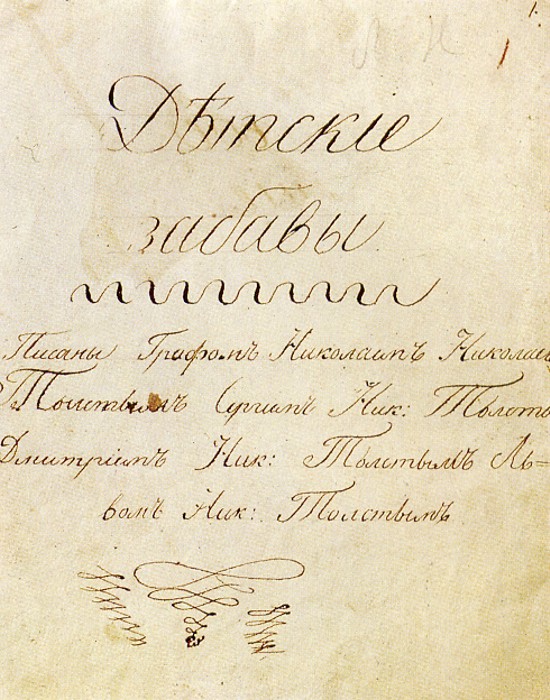 1.
Л Н
Дѣтскіе
забавы
Писаны Графомъ Николаимъ Николаев
Толстымъ Сергіимъ Ник: Толсты
Дмитріимъ Ник: Толстымъ Ль=
вомъ Ник: Толстымъ